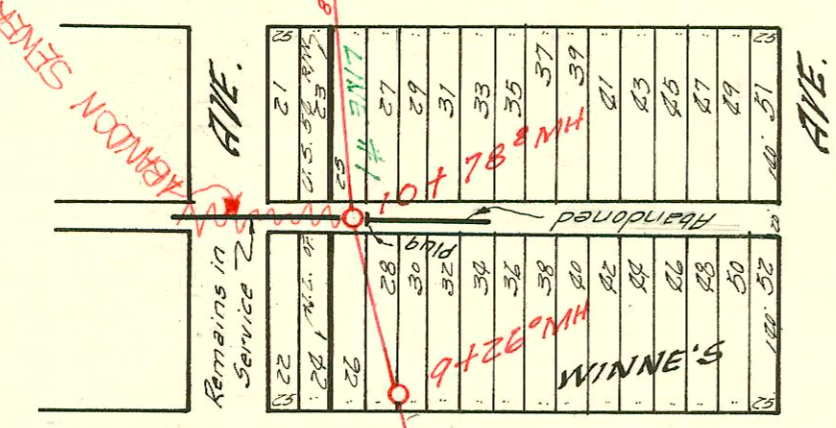 ABANDON SEWER
8
AVE.
AVE.
52
21
23
U.S. 52 R/W
25
LINE #1
27
29
31
33
35
37
39
41
43
45
47
49
51
52
140'
10+78⁸ MH
Abandoned
20'
Plug
Remains in
Service
22
52
24
N.L. OF
26
28
30
32
34
36
38
40
42
44
46
48
50
52
140'
52
9+26⁰ MH
WINNE'S